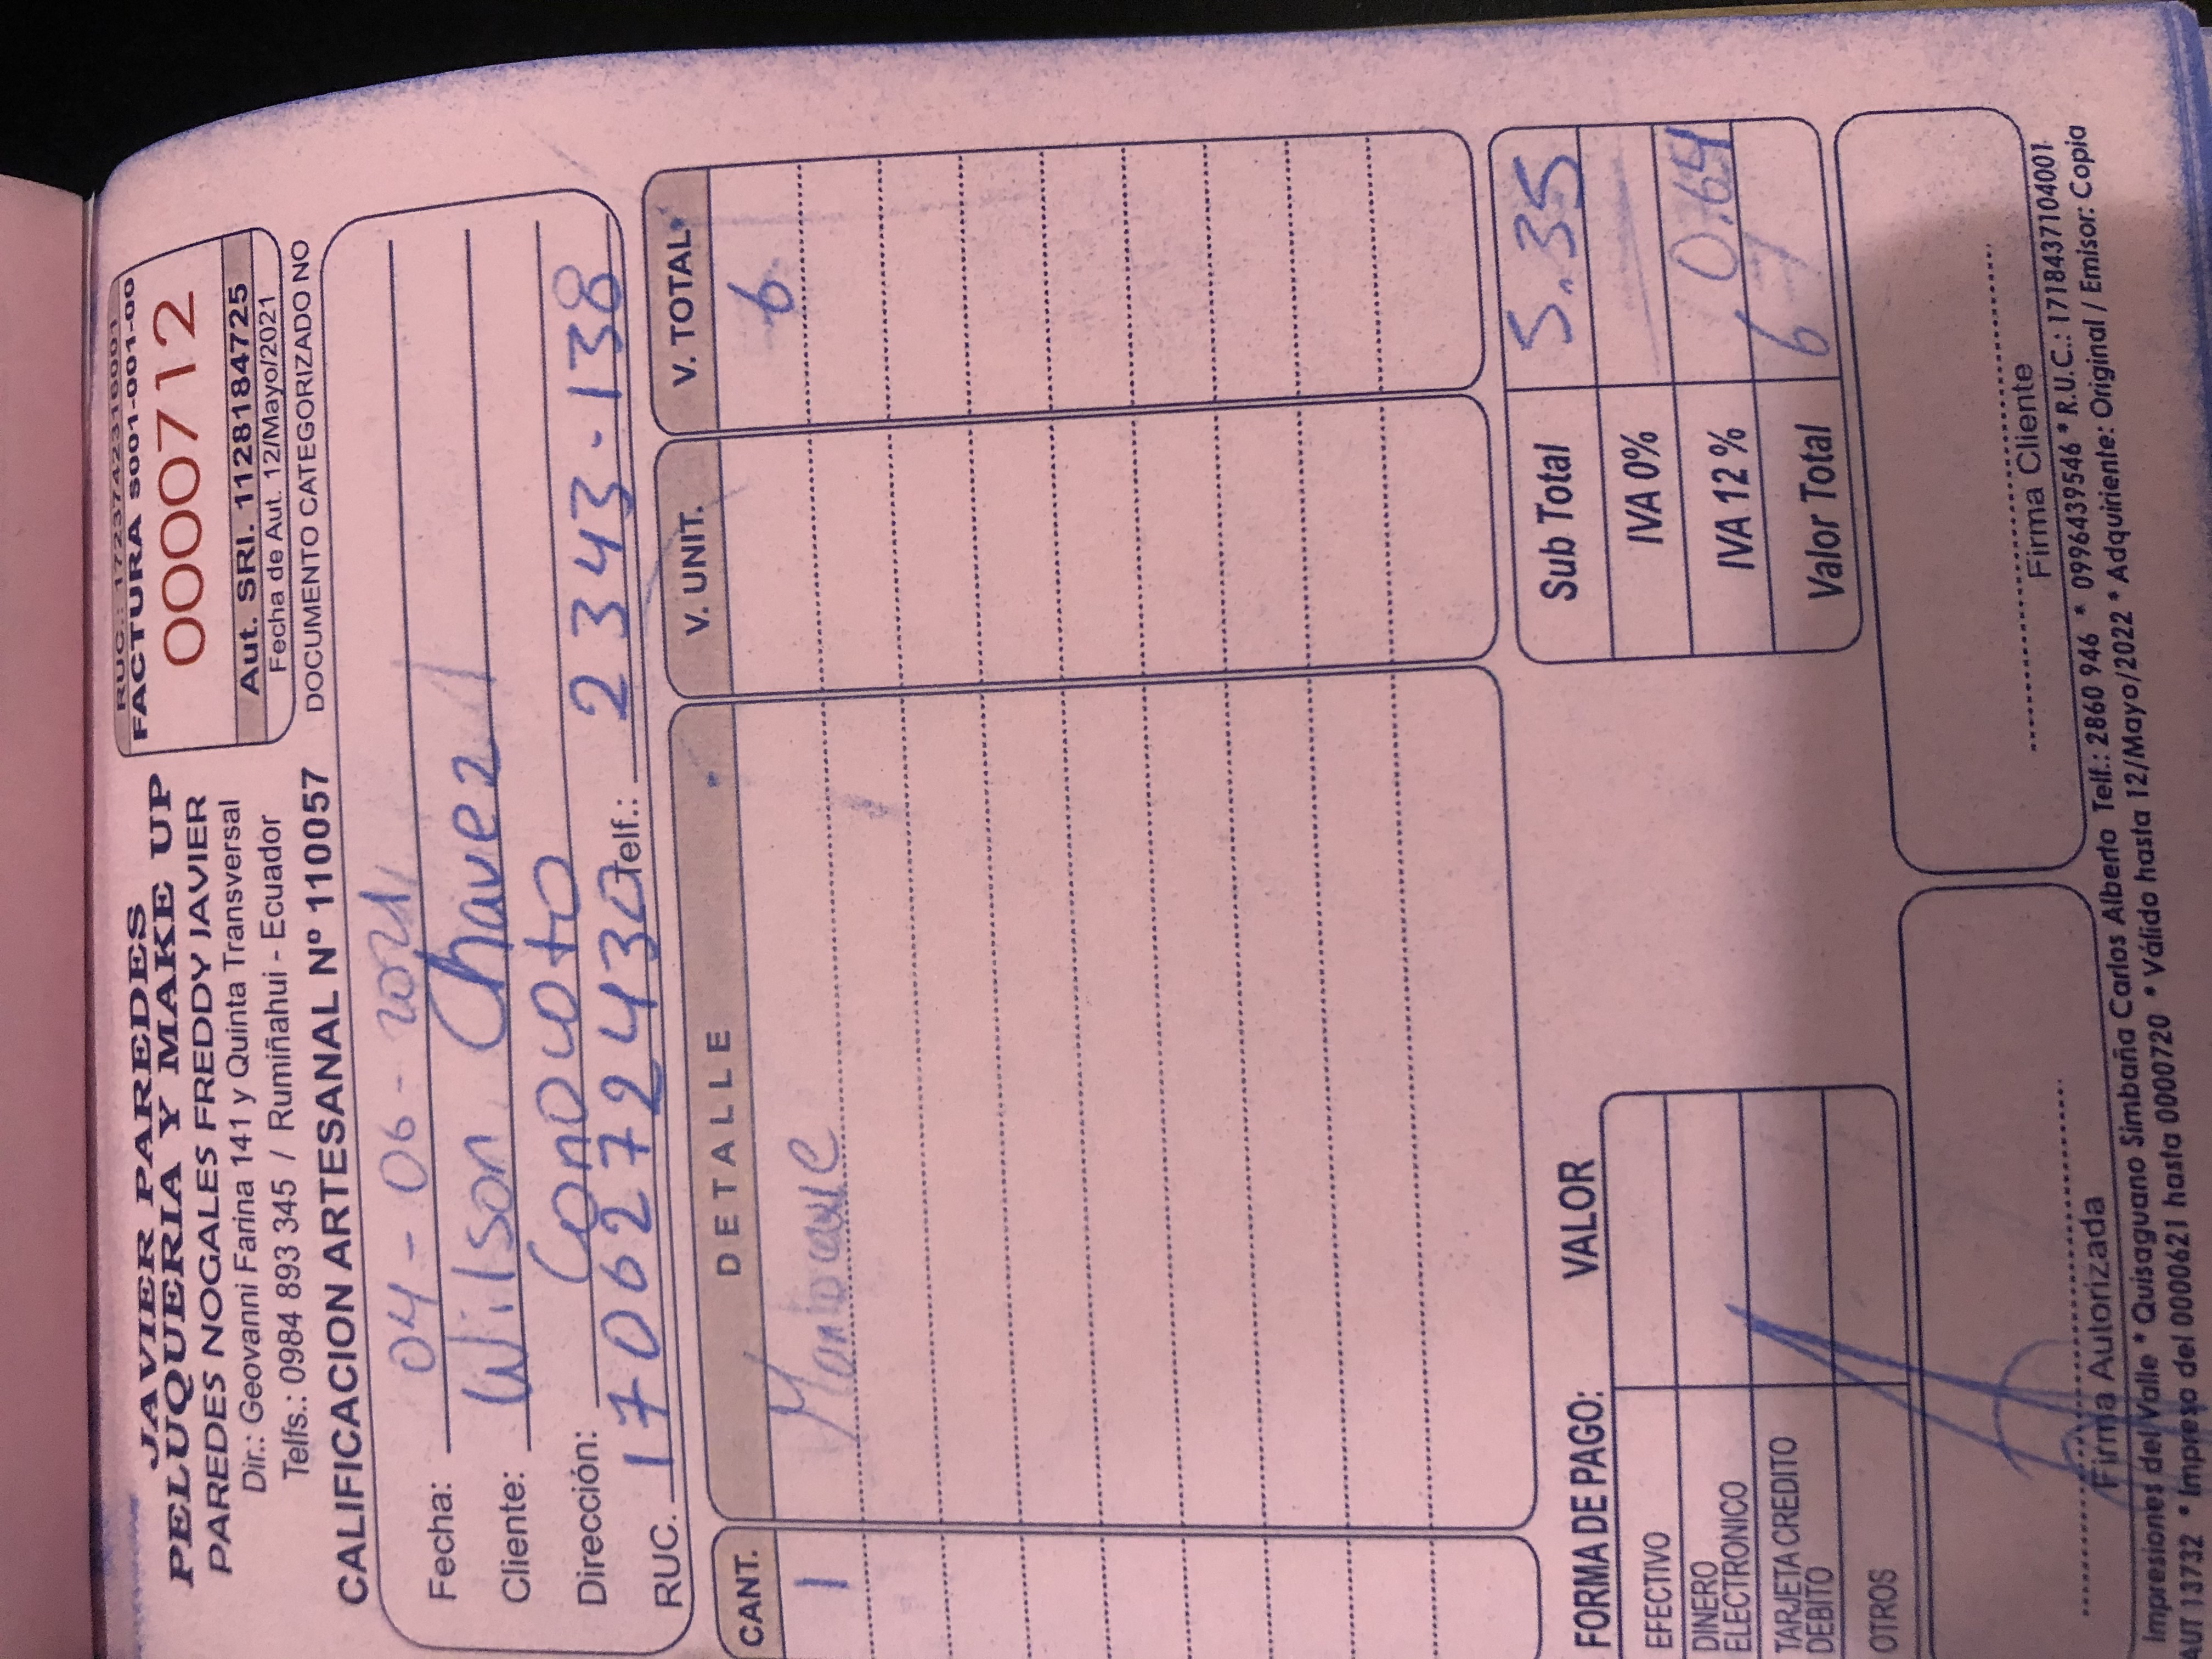 JAVIER PAREDES
PELUQUERIA Y MAKE UP
PAREDES NOGALES FREDDY JAVIER
Dir.: Geovanni Farina 141 y Quinta Transversal
Telfs.: 0984 893 345 / Rumiñahui - Ecuador
CALIFICACION ARTESANAL Nº 110057
RUC.: 1723742316001
FACTURA S001-001-00
0000712
Aut. SRI. 1128184725
Fecha de Aut. 12/Mayo/2021
DOCUMENTO CATEGORIZADO NO
Fecha: 04-06-2021
Cliente: Wilson Chavez
Dirección: Conocoto
RUC. 1706272430 Telf.: 2343-138
CANT. DETALLE V. UNIT. V. TOTAL
1 6
Sub Total 5.35
IVA 0%
IVA 12 % 0.64
Valor Total 6
FORMA DE PAGO: VALOR
EFECTIVO
DINERO
ELECTRONICO
TARJETA CREDITO
DEBITO
OTROS
Firma Autorizada
Firma Cliente
Impresiones del Valle * Quisaguano Simbaña Carlos Alberto Telf.: 2860 946 * 0996439546 * R.U.C.: 1718437104001
AUT 13732 * Impreso del 0000621 hasta 0000720 * Válido hasta 12/Mayo/2022 * Adquiriente: Original / Emisor: Copia